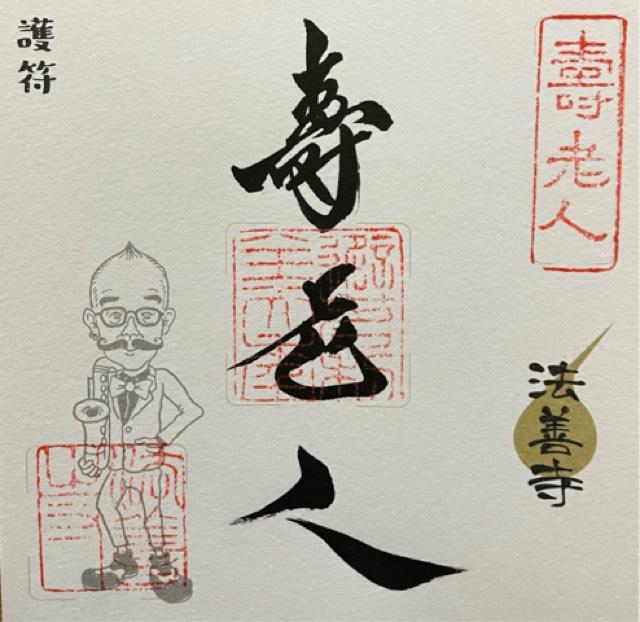 護符
壽老人
壽老人
法善寺